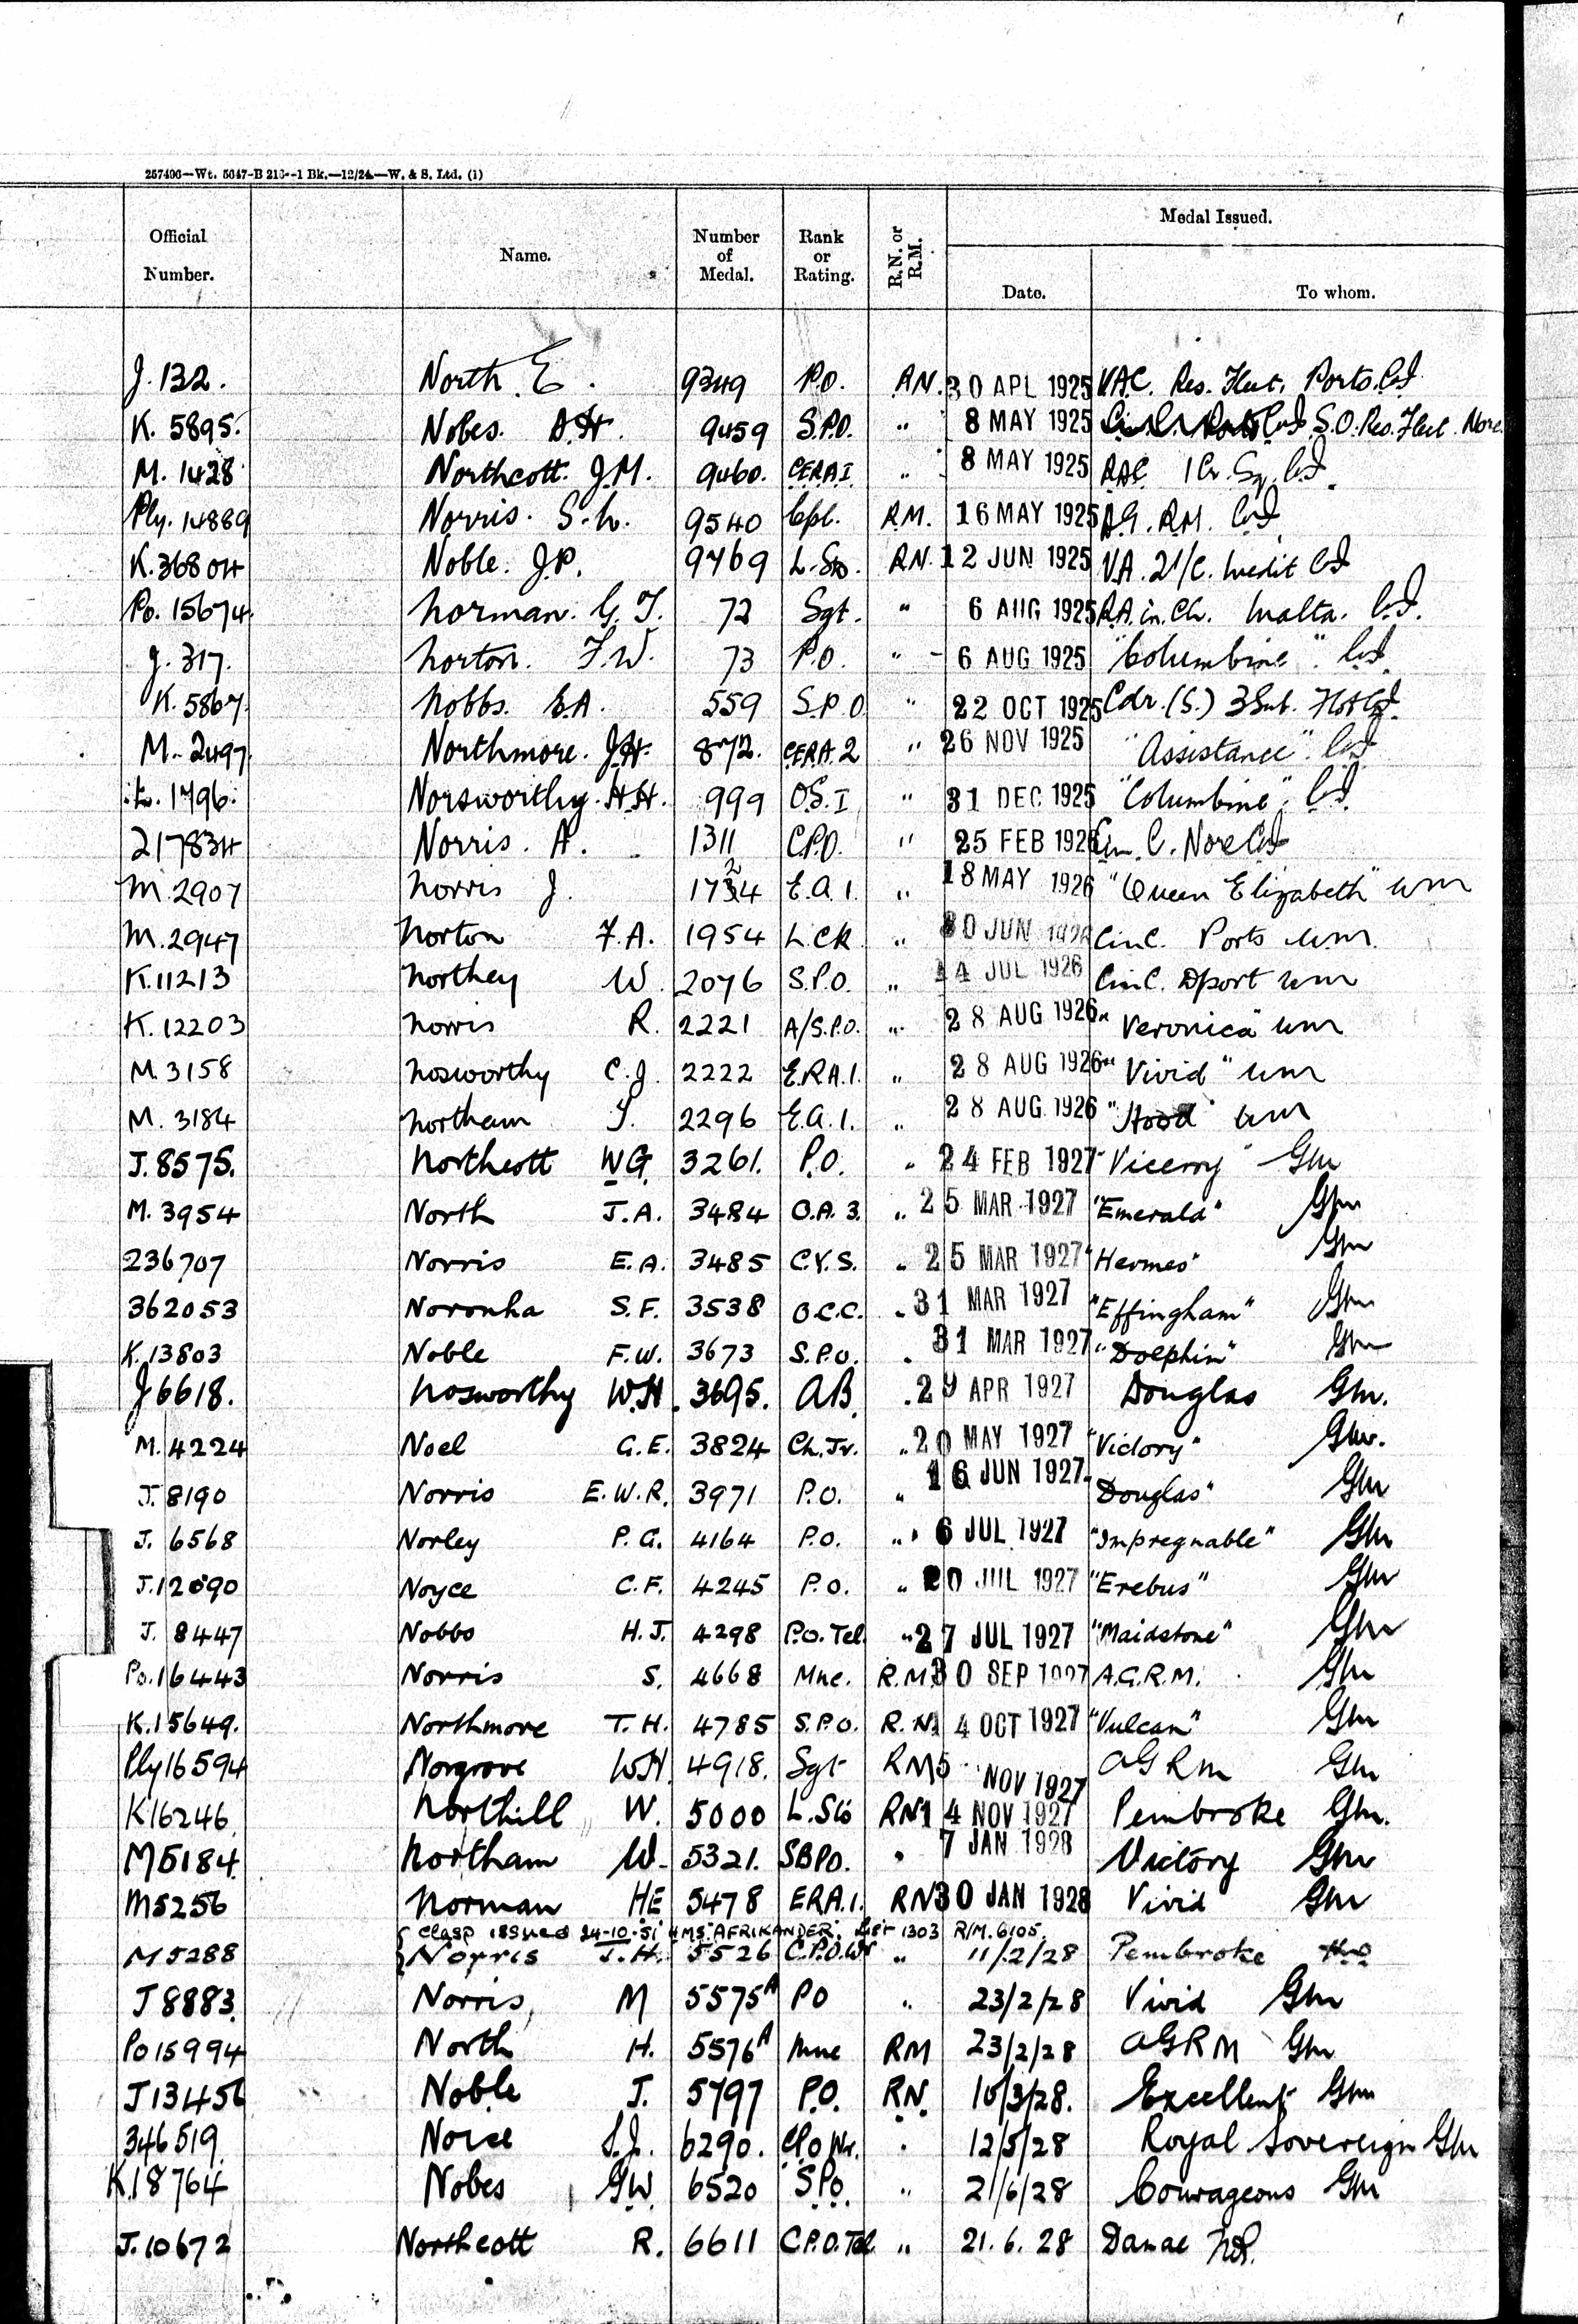 257496—Wt. 5647-B 216--1 Bk.—12/24.—W. & S. Ltd. (1)
Official Number. Name. Number of Medal. Rank or Rating. R.N. or R.M. Medal Issued. Date. To whom.
J. 132. North E. 9349 P.O. R.N. 30 APL 1925 V.A.C. Res. Fleet. Ports.
K. 5895. Nobes. 9459 S.P.O. " 8 MAY 1925 S.O. Res. Fleet. Nore.
M. 1428 Northcott. J.M. 9460. C.E.R.A.I. " 8 MAY 1925 RAC 1 Cr. Sq.
Ply. 14889 Norris. 9540 Cpl. R.M. 16 MAY 1925 A.G. R.M.
K. 36804 Noble. J.P. 9769 L. Sto. R.N. 12 JUN 1925 V.A. 2i/c. Medit
Po. 15674. Norman. G. T. 72 Sgt. " 6 AUG 1925 R.A. in. Ch. Malta.
J. 317. Norton. F.W. 73 P.O. " 6 AUG 1925 "Columbine".
K. 5867. Nobbs. E.A. 559 S.P.O " 22 OCT 1925 Cdr. (S.) 3 Sub. Flot
M. 2497. Northmore. J.H. 872. C.E.R.A. 2 " 26 NOV 1925 "Assistance"
1796. Norsworthy. H.H. 999 O.S. I " 31 DEC 1925 "Columbine".
217834 Norris. A. 1311 C.P.O. " 25 FEB 1926 C. Nore
M. 2907 Norris J. E.A. 1. " 18 MAY 1926 "Queen Elizabeth" wm
M. 2947 Norton F.A. 1954 L. CK " 30 JUN 1926 CinC. Ports wm.
K. 11213 Northey W. 2076 S.P.O. " 14 JUL 1926 CinC. Dport wm
K. 12203 Norris R. 2221 A/S.P.O. " 28 AUG 1926 "Veronica" wm
M. 3158 Nosworthy C.J. 2222 E.R.A.1. " 28 AUG 1926 "Vivid" wm
M. 3184 Northam 2296 E.A. 1. " 28 AUG 1926 "Hood" wm
J. 8575. Northcott W G. 3261. P.O. " 24 FEB 1927 "Viceroy" Gm
M. 3954 North J.A. 3484 O.A. 3. " 25 MAR 1927 "Emerald" Gm
236707 Norris E.A. 3485 C.Y.S. " 25 MAR 1927 "Hermes" Gm
362053 Noronha S.F. 3538 O.C.C. " 31 MAR 1927 "Effingham" Gm
K. 13803 Noble F.W. 3673 S.P.O. " 31 MAR 1927 "Dolphin" Gm
J 6618. Nosworthy W.H. 3695. AB. " 29 APR 1927 Douglas Gm.
M. 4224 Noel G.E. 3824 Ch. Jr. " 20 MAY 1927 "Victory" Gm.
J. 8190 Norris E.W.R. 3971 P.O. " 16 JUN 1927 "Douglas" Gm
J. 6568 Norley P.G. 4164 P.O. " 6 JUL 1927 "Impregnable" Gm
J. 12090 Noyce C.F. 4245 P.O. " 20 JUL 1927 "Erebus" Gm
J. 8447 Nobbs H.J. 4298 P.O. Tel. " 27 JUL 1927 "Maidstone" Gm
Po. 16443 Norris S. 4668 Mne. R.M. 30 SEP 1927 A.G.R.M. Gm
K. 15649. Northmore T.H. 4785 S.P.O. R.N. 4 OCT 1927 "Vulcan" Gm
Ply 16594 Norgrove WH. 4918. Sgt RM 5 NOV 1927 AGRM Gm
K16246. Northill W. 5000 L. Sto RN 14 NOV 1927 Pembroke Gm.
M5184. Northam W. 5321. SBPO. " 7 JAN 1928 Victory Gm
M5256 Norman HE 5478 ERA.1. RN 30 JAN 1928 Vivid Gm
Clasp issued 24-10-51 HMS "AFRIKANDER". List 1303 R/M. 6105.
M 5288 Norris J.H. 5526 C.P.O. Wr " 11/2/28 Pembroke
J 8883. Norris, M 5575A PO " 23/2/28 Vivid Gm
Po 15994 North H. 5576A Mne RM 23/2/28 AGRM Gm
J 13456 Noble J. 5797 P.O. RN. 10/3/28. Excellent Gm
346519. Noise S.J. 6290. CPO Wr. " 12/5/28 Royal Sovereign Gm
K.18764 Nobes GW. 6520 S.P.O. " 21/6/28 Courageous Gm
J. 10672 Northcott R. 6611 C.P.O. Tel. " 21. 6. 28 Danae